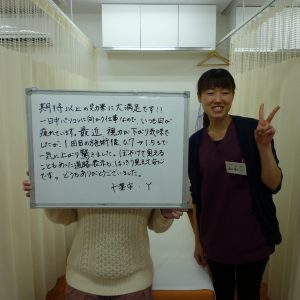 期待以上の効果に大満足です!!
一日中パソコンに向かう仕事なので、いつも目が
疲れています。最近、視力が下がり気味で
したが、1回目の施術後、0.7→1.5まで
一気に上がり驚きました。ぼやけて見える
こともあった道路標示も、はっきり見えて安心
です。どうもありがとうございました。
千葉市・Y